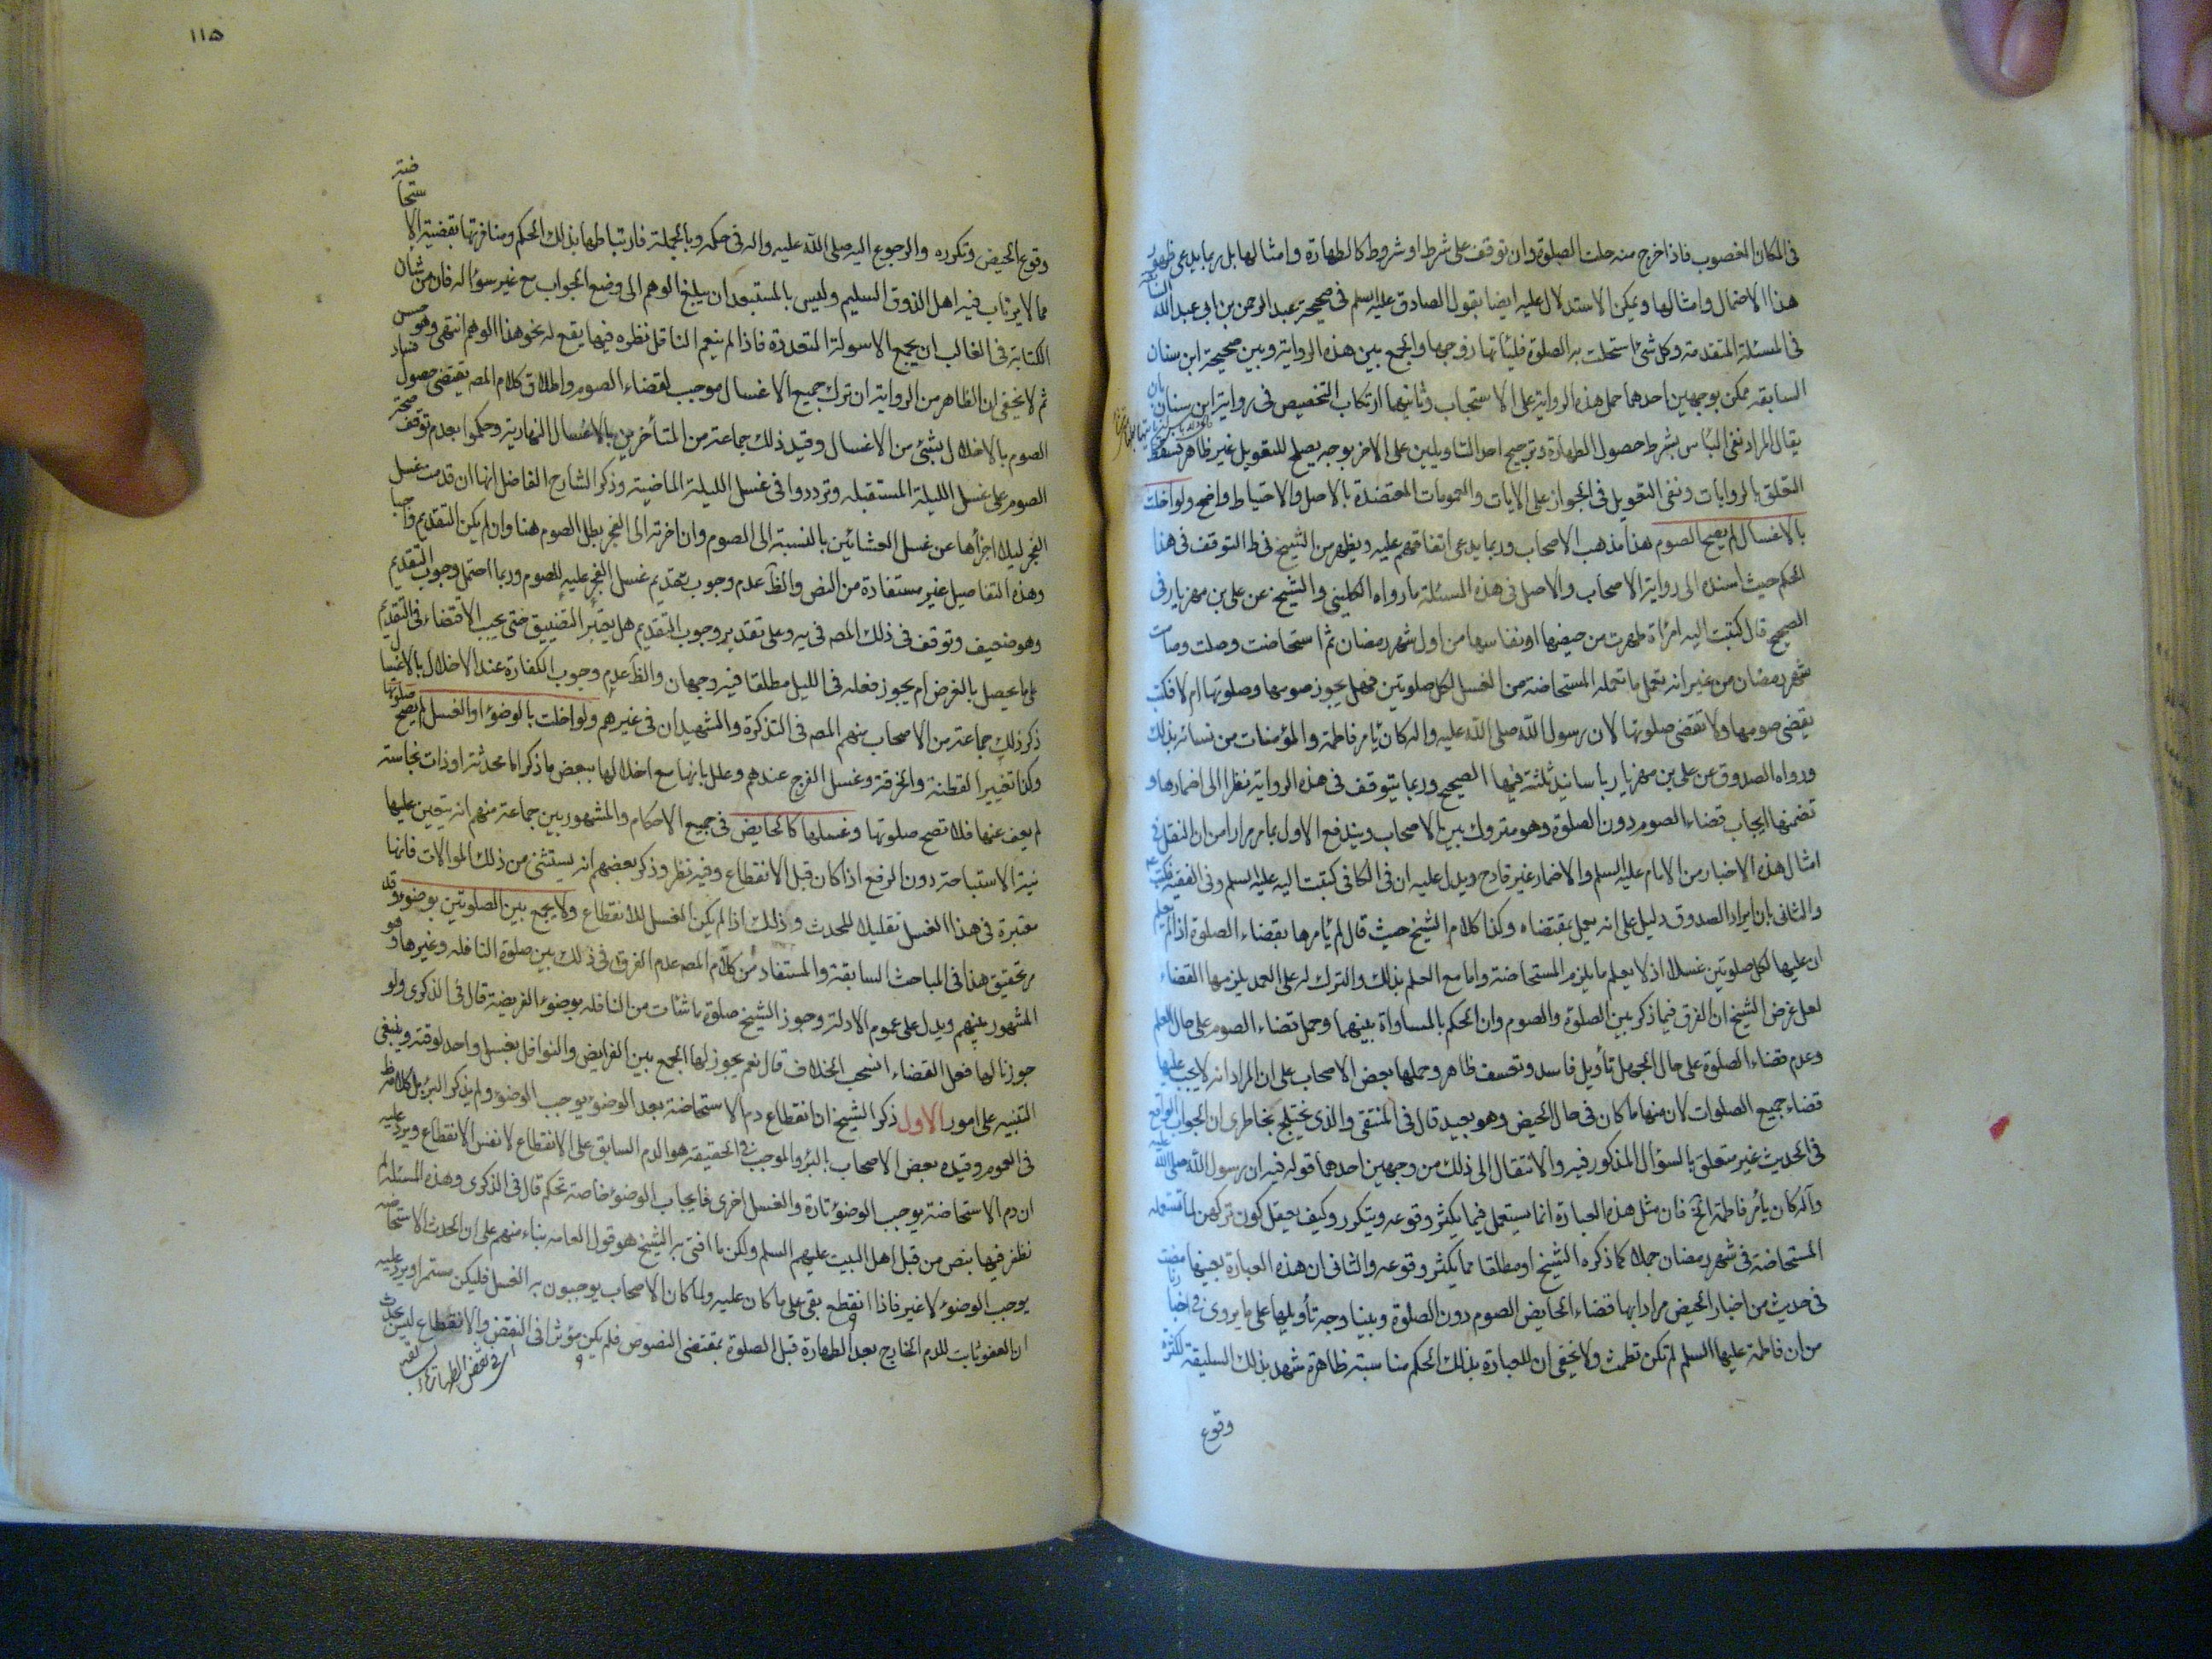 فى المكان المغصوب فاذا خرج منه حلت الصلوة وان توقف على شرط او شروط كالطهارة وامثالها بل ربما يدعى ظهور
هذا الاحتمال وامثالها ويمكن الاستدلال عليه ايضا بقول الصادق عليه السلم فى صحيحة عبد الرحمن بن ابى عبد الله
فى المسئلة المتقدمة وكل شئ استحلت به الصلوة فليأتها زوجها والجمع بين هذه الرواية وبين صحيحة ابن سنان
السابقه ممكن بوجهين احدهما حمل هذه الرواية على الاستحباب وثانيهما ارتكاب التخصيص فى رواية ابن سنان بان
يقال المراد نفى الباس بشرط حصول الطهارة وترجيح احد التاويلين على الاخر بوجه يصلح للتعويل غير ظاهر
التعلق بالروايات ونفى التعويل فى الجواز على الايات والعمومات المعتضدة بالاصل والاحتياط واضح ولو اخلت
بالاغسال لم يصح الصوم هذا مذهب الاصحاب وربما يدعى اتفاقهم عليه ويظهر من الشيخ فى ط التوقف فى هذا
الحكم حيث اسنده الى رواية الاصحاب والاصل فى هذه المسئلة ما رواه الكلينى والشيخ عن على بن مهزيار فى
الصحيح قال كتبت اليه امرأة طهرت من حيضها او نفاسها من اول شهر رمضان ثم استحاضت وصلت وصامت
شهر رمضان من غير ان تعمل ما تعمله المستحاضة من الغسل لكل صلوتين فهل يجوز صومها وصلوتها ام لا فكتب
يقضى صومها ولا تقضى صلوتها لان رسول الله صلى الله عليه واله كان يأمر فاطمة والمؤمنات من نسائه بذلك
ورواه الصدوق عن على بن مهزيار باسانيد ثلثة فيها الصحيح وربما يتوقف فى هذه الرواية نظرا الى اضمارها و
تضمنها ايجاب قضاء الصوم دون الصلوة وهو متروك بين الاصحاب ويندفع الاول بما مر مرارا من ان النقل فى
امثال هذه الاخبار من الامام عليه السلم والاضمار غير قادح ويدل عليه ان فى الكافى كتبت اليه عليه السلم وفى الفقيه فكتب ع
والثانى بان ايراد الصدوق دليل على انه يعمل بمقتضاه وكذا كلام الشيخ حيث قال لم يأمرها بقضاء الصلوة اذا لم تعلم
ان عليها لكل صلوتين غسلا اذ لا يعلم ما يلزم المستحاضة واما مع العلم بذلك والترك له على العمد يلزمها القضاء
لعل غرض الشيخ ان الفرق فيما ذكر بين الصلوة والصوم وان الحكم بالمساواة بينهما وحمل قضاء الصوم على حال العلم
وعدم قضاء الصلوة على حال الجهل تأويل فاسد وتعسف ظاهر وحملها بعض الاصحاب على ان المراد انه لا يجب عليها
قضاء جميع الصلوات لان منها ما كان فى حال الحيض وهو بعيد قال فى المنتقى والذى يختلج بخاطرى ان الجواب الواقع
فى الحديث غير متعلق بالسؤال المذكور فيه والانتقال الى ذلك من وجهين احدهما قوله فيه ان رسول الله صلى الله عليه
وآله كان يأمر فاطمة الخ فان مثل هذه العبارة انما يستعمل فيما يكثر وقوعه ويتكرر وكيف يعقل كون تركهن لما تستعمله
المستحاضة فى شهر رمضان جهلا كما ذكره الشيخ او مطلقا مما يكثر وقوعه والثانى ان هذه العبارة بعينها مضت
فى حديث من اخبار الحيض مرادا بها قضاء الحايض الصوم دون الصلوة وبينا وجه تأويلها على ما يروى فى اخبارنا
من ان فاطمة عليها السلم لم تكن تطمث ولا يخفى ان للعبارة بذلك الحكم مناسبة ظاهرة شهد بذلك السليقة لكثرة
وقوع
١١٥
وقوع الحيض وتكرره والرجوع اليه صلى الله عليه واله فى حكمه وبالجملة فارتباطها بذلك الحكم ومنافرتها بقضية الاستحاضة
مما لا يرتاب فيه اهل الذوق السليم وليس بالمستبعد ان يبلغ الوهم الى وضع الجواب مع غير سؤاله فان من شأن
الكتابة فى الغالب ان يجمع الاسولة المتعددة فاذا لم ينعم الناقل نظره فيها يقع له نحو هذا الوهم انتهى وهو حسن
ثم لا يخفى ان الظاهر من الرواية ان ترك جميع الاغسال موجب لقضاء الصوم واطلاق كلام المصه يقتضى حصول فساد
الصوم بالاخلال بشئ من الاغسال وقيد ذلك جماعة من المتأخرين بالاغسال النهارية وحكموا بعدم توقف صحة
الصوم على غسل الليلة المستقبله وترددوا فى غسل الليلة الماضية وذكر الشارح الفاضل انها ان قدمت غسل
الفجر ليلا اجزأها عن غسل العشائين بالنسبة الى الصوم وان اخرته الى الفجر بطل الصوم هنا وان لم يكن التقديم واجبا
وهذه التفاصيل غير مستفادة من النص والظ عدم وجوب تقديم غسل الفجر عليه للصوم وربما احتمل وجوب التقديم
وهو ضعيف وتوقف فى ذلك المصه فى يه وعلى تقدير وجوب التقديم هل يعتبر التضييق حتى يجب الاقتضاء فى التقديم
على ما يحصل بالغرض ام يجوز فعله فى الليل مطلقا فيه وجهان والظ عدم وجوب الكفارة عند الاخلال بالاغسال
ذكر ذلك جماعة من الاصحاب منهم المصه فى التذكرة والشهيدان فى غيرهم ولو اخلت بالوضوء او الغسل لم يصح صلوتها
وكذا تغيير القطنة والخرقة وغسل الفرج عندهم وعلل بانها مع اخلالها ببعض ما ذكر اما محدثة او ذات نجاسة
لم يعف عنها فلا تصح صلوتها وغسلها كالحايض فى جميع الاحكام والمشهور بين جماعة منهم انه يتعين عليها
نية الاستباحة دون الرفع اذا كان قبل الانقطاع وفيه نظر وذكر بعضهم انه يستثنى من ذلك الموالات فانها
معتبرة فى هذا الغسل تقليلا للحدث وذلك اذا لم يكن الغسل للانقطاع ولا يجمع بين الصلوتين بوضوء وقد
مر تحقيق هذا فى المباحث السابقة والمستفاد من كلام المصه عدم الفرق فى ذلك بين صلوة النافله وغيرها وهو
المشهور بينهم ويدل على عموم الادلة وجوز الشيخ صلوة ما شائت من النافله بوضوء الفريضة قال فى الذكرى ولو
جوزنا لها فعل القضاء انسحب الخلاف قال نعم يجوز لها الجمع بين الفرايض والنوافل بغسل واحد لوقته وينبغى
التنبيه على امور الاول ذكر الشيخ ان انقطاع دم الاستحاضة بعد الوضوء يوجب الوضوء ولم يذكر البرء بل كلامه ظ
فى العموم وقيده بعض الاصحاب بالبرء والموجب فى الحقيقة هو الدم السابق على الانقطاع لا نفس الانقطاع ويرد عليه
ان دم الاستحاضة يوجب الوضوء تارة والغسل اخرى فايجاب الوضوء خاصة تحكم قال فى الذكرى وهذه المسئلة لم
نظفر فيها بنص من قبل اهل البيت عليهم السلم ولكن ما افتى به الشيخ هو قول العامه بناء منهم على ان الحدث الاستحاضه
يوجب الوضوء لا غير فاذا انقطع بقى على ما كان عليه ولما كان الاصحاب يوجبون به الغسل فليكن مستمرا ويرد عليه
ان العفو ثابت للدم الخارج بعد الطهارة قبل الصلوة بمقتضى النصوص فلم يكن مؤثرا فى النقض والانقطاع ليس بحدث